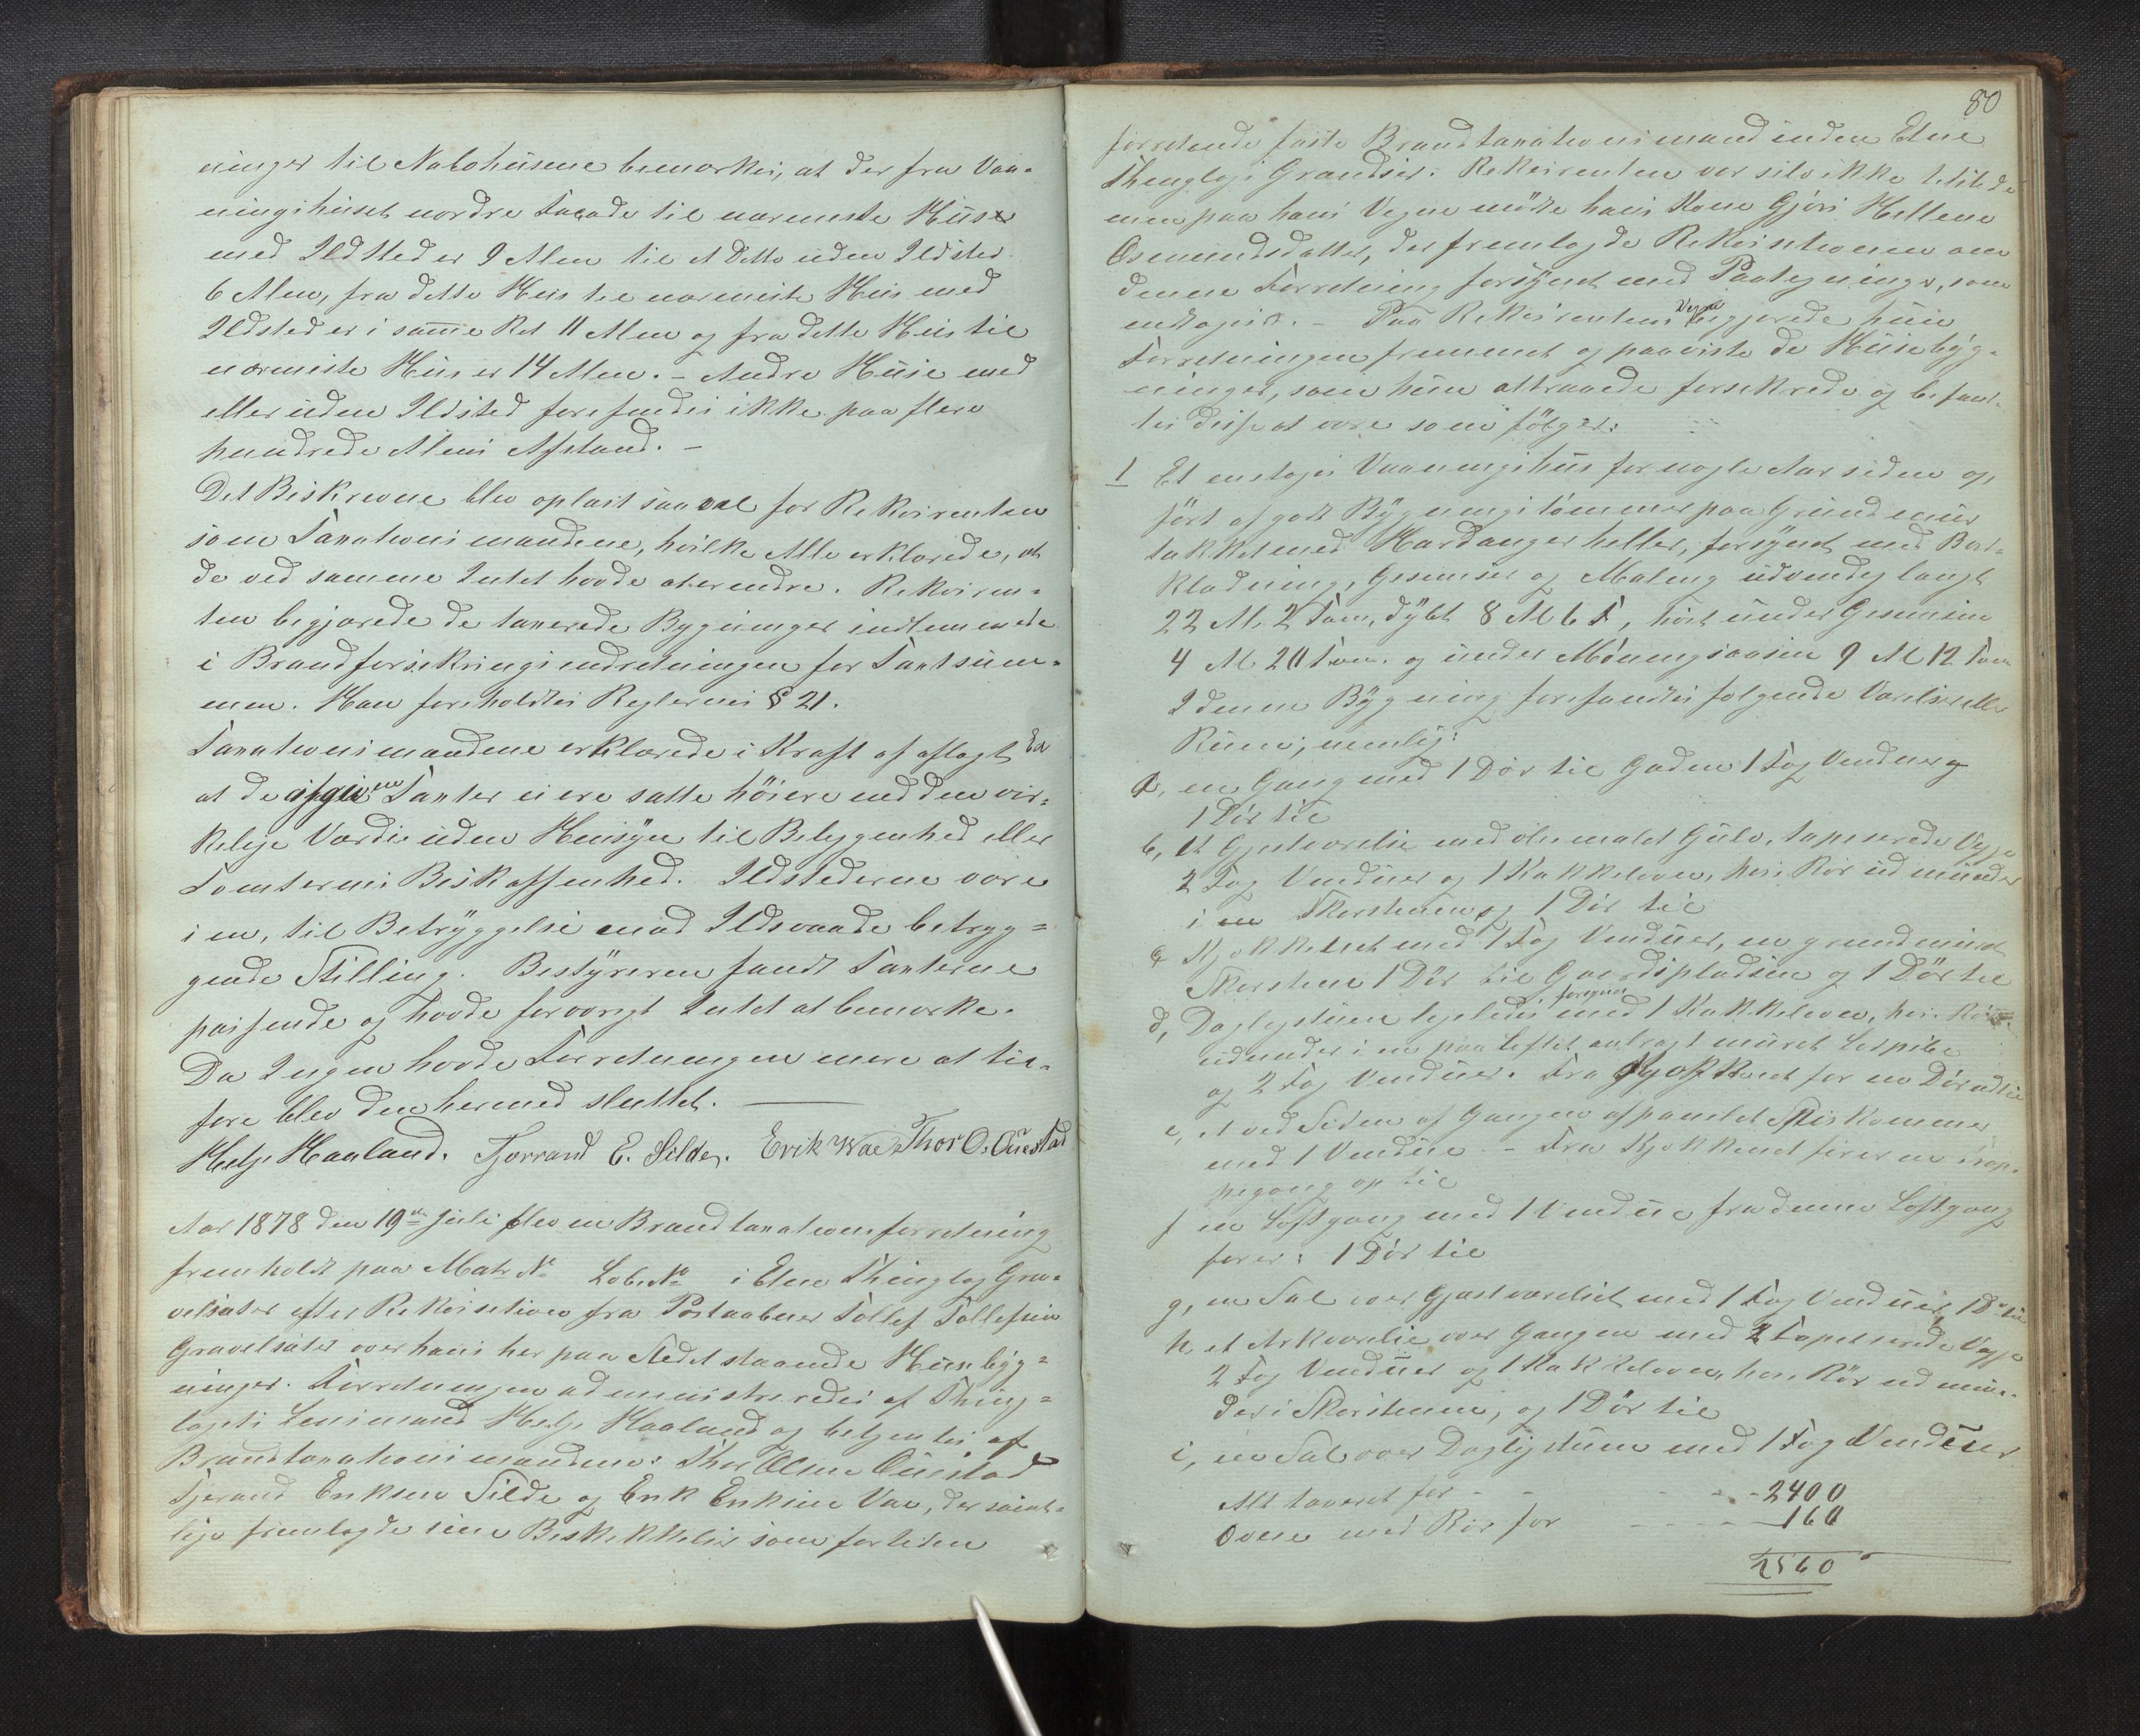 ninger til Nabohusene bemærkes, at der fra Vaa-
ningshuset nordre Facade til nærmeste Huse
med Ildsted er 9 Alen til et Ditto uden Ildsted
6 Alen, fra dette Hus til nærmeste Hus med
Ildsted er i samme Ret 11 Alen og fra dette Hus til
nærmeste Hus er 14 Alen. - Andre Huse med
eller uden Ildsted forefindes ikke paa flere
hundrede Alens Afstand. -
Det Beskrevne blev oplæst saavel for Rekvirenten
som Taxationsmændene, hvilke Alle erklærede, at
de ved samme Intet havde at erindre. Rekviren-
ten begjærede de taxerede Bygninger indlemmede
i Brandforsikringsindretningen for Taxtsum-
men. Han foreholdtes Reglernes § 21.
Taxationsmændene erklærede i Kraft af aflagt Ed
at de afgivne Taxter ei ere satte höiere end den vir-
kelige Værdie uden Hensyn til Beliggenhed eller
Tomternes Beskaffenhed. Ildstederne vare
i en, til Betryggelse mod Ildsvaade betryg=
gende Stilling. Bestyreren fandt Taxterne
passende og havde forövrigt Intet at bemærke.
Da Ingen havde Forretningen mere at til-
före blev den hermed sluttet.
Helje Haaland. Tjerrand E. Silde. Erik Vae Thor O. Öirestad
Aar 1878 den 19de Juli blev en Brandtaxationsforretning
fremholdt paa Matr No Löbe No i Etne Thinglag Gra-
velsæter efter Rekvisition fra Postaabner Tollef Tollefsen
Gravelsæter over hans her paa Stedet staaende Husebyg=
ninger. Forretningen administreredes af Thing=
lagets Lensmand Helje Haaland og betjentes af
Brandtaxationsmændene: Thor Olsen Öirestad
Tjerand Eriksen Silde og Erik Eriksen Vae, der samt-
lige fremlagde sine Beskikkelser som fortiden
80
forrettende faste Brandtaxationsmænd inden Etne
Thinglags Grændser. Rekvirenten var selv ikke tilstede
men paa hans Vegne mödte hans Kone Gjöri Hellene
Osmundsdatter, der fremlagde Rekvisitionen om
denne Forretning forsynet med Paategninger, som
indtages. - Paa Rekvirentens Vegne begjærede hun
Forretningen fremmet og paaviste de Husebyg-
ninger, som hun attraaede forsikrede og befand-
tes disse at være som fölger:
1 Et enetages Vaaningshus for nogle Aar siden op-
fört af godt Bygningstömmer paa Grundmur
takket med Hardangerheller, forsynet med Bord-
klædning, Gesimser og Maling udvendig langt
22 Al. 2 Tom, dybt 8 Al 6 T, höit under Gesimsen
4 Al 20 Tom. og under Möningsaasen 9 Al 12 Tom
I denne Bygning forefandtes fölgende Værelser eller
Rum, nemlig:
a, en Gang med 1 Dör til Gaden 1 Fag Vinduer og
1 Dör til
b, et Gjesteværelse med oliemalet Gulv, tapetserede Vægge
2 Fag Vinduer og 1 Kakkelovn, hvis Rör udmunder
i en Skorstenen, og 1 Dör til
c Kjökkenet med 1 Fag Vinduer, en grundmuret
Skorsten 1 Dör til Gaardspladsen og 1 Dör til
d, Dagligstuen ligeledes forsynet med 1 Kakkelovn, hvis Rör
udmunder i en paa Loftet anbragt muret Lodpibe
og 2 Fag Vinduer. Fra Kjökkenet før en Dör ud til
e, et ved Siden af Gangen afpanelet Spiskammer
med 1 Vindue. - Fra Kjökkenet förer en Trap-
pegang op til
f en Loftgang med 1 Vindue fra denne Loftgang
förer: 1 Dör til
g, en Sal over Gjestværelset med 1 Fag Vinduer, 1 Dör til
h et Arkværelse over Gangen med Tapetserede Vægge
2 Fag Vinduer og 1 Kakkelovn, hvis Rör udmun-
der i Skorstenen, og 1 Dör til
i, en Sal over Dagligstuen med 1 Fag Vinduer
Alt taxeret for - - - - - 2400
Ovne med Rör for - - - - 160
2560